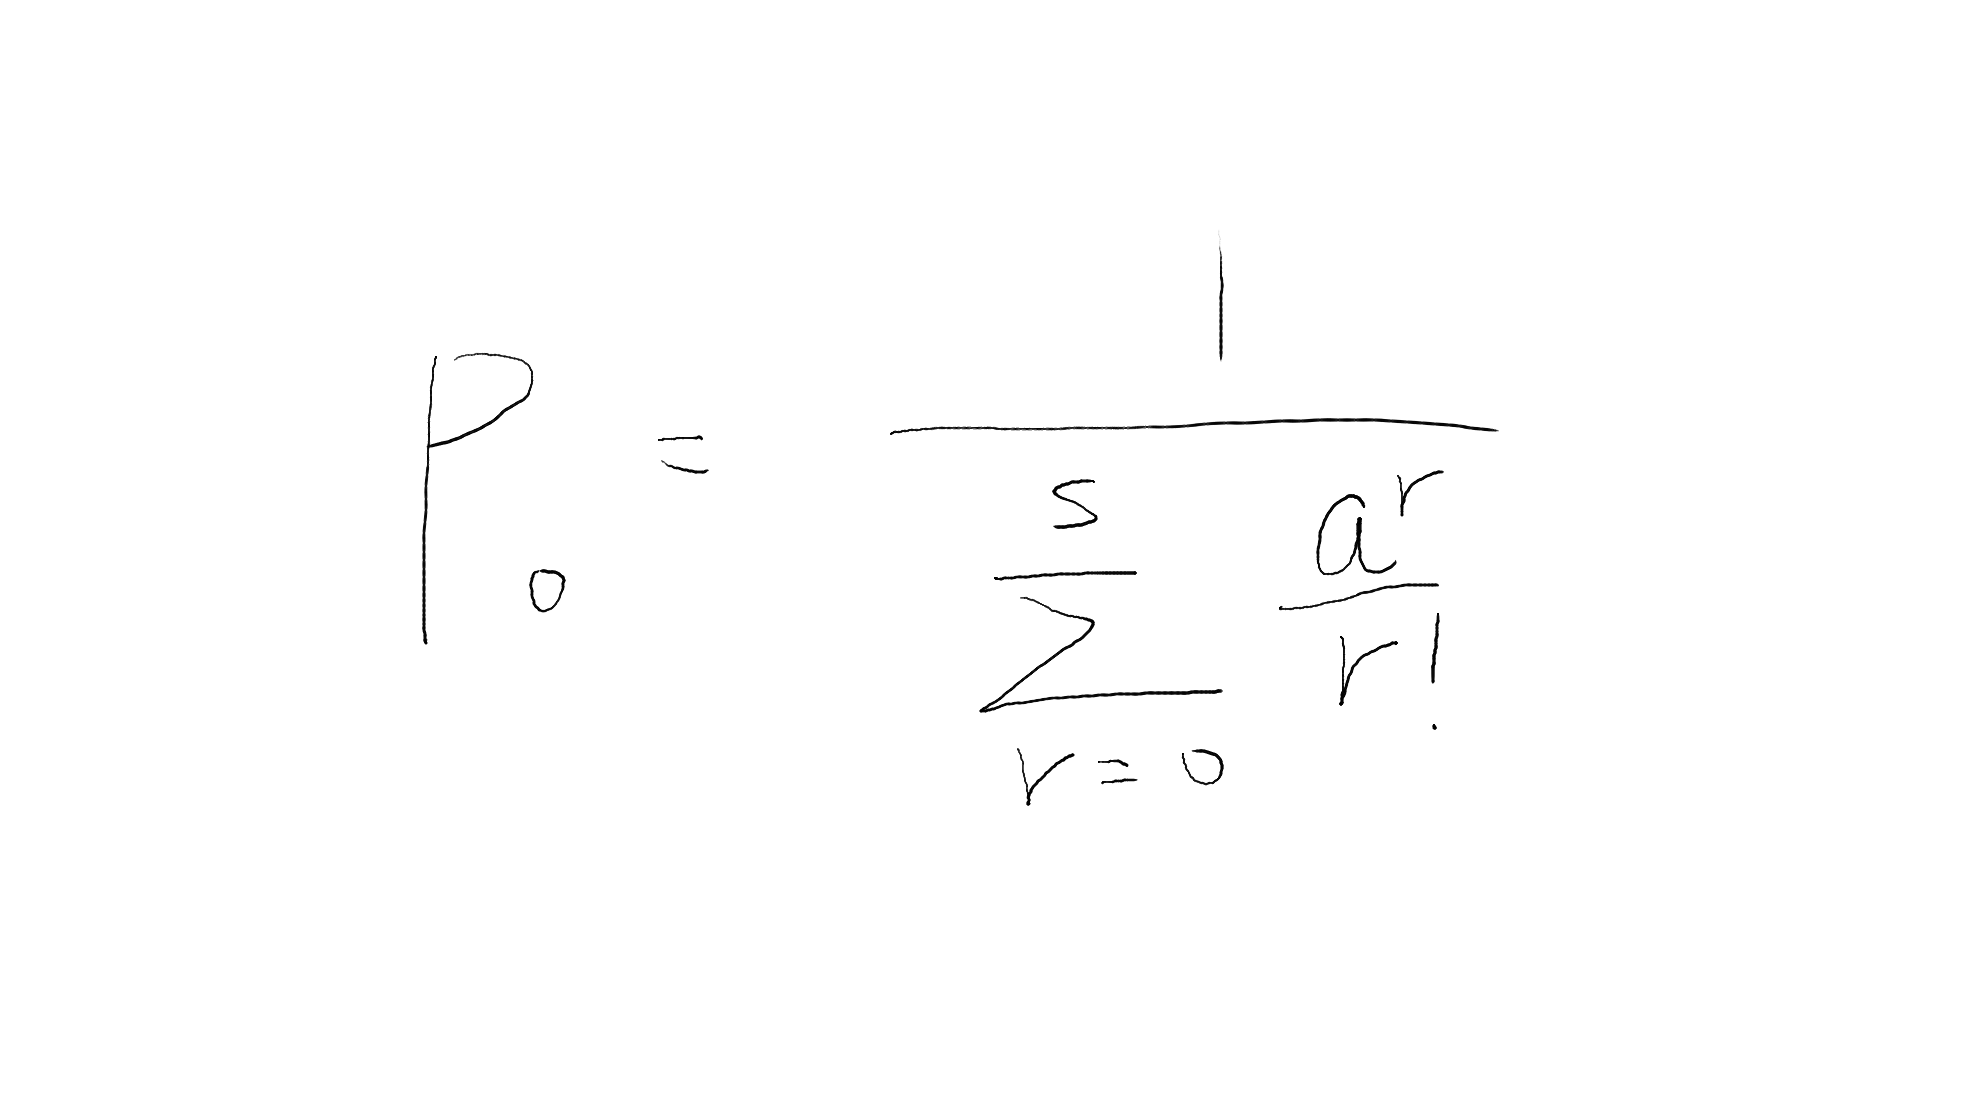 P_0 = \frac{1}{\sum_{r=0}^{s} \frac{a^r}{r!}}